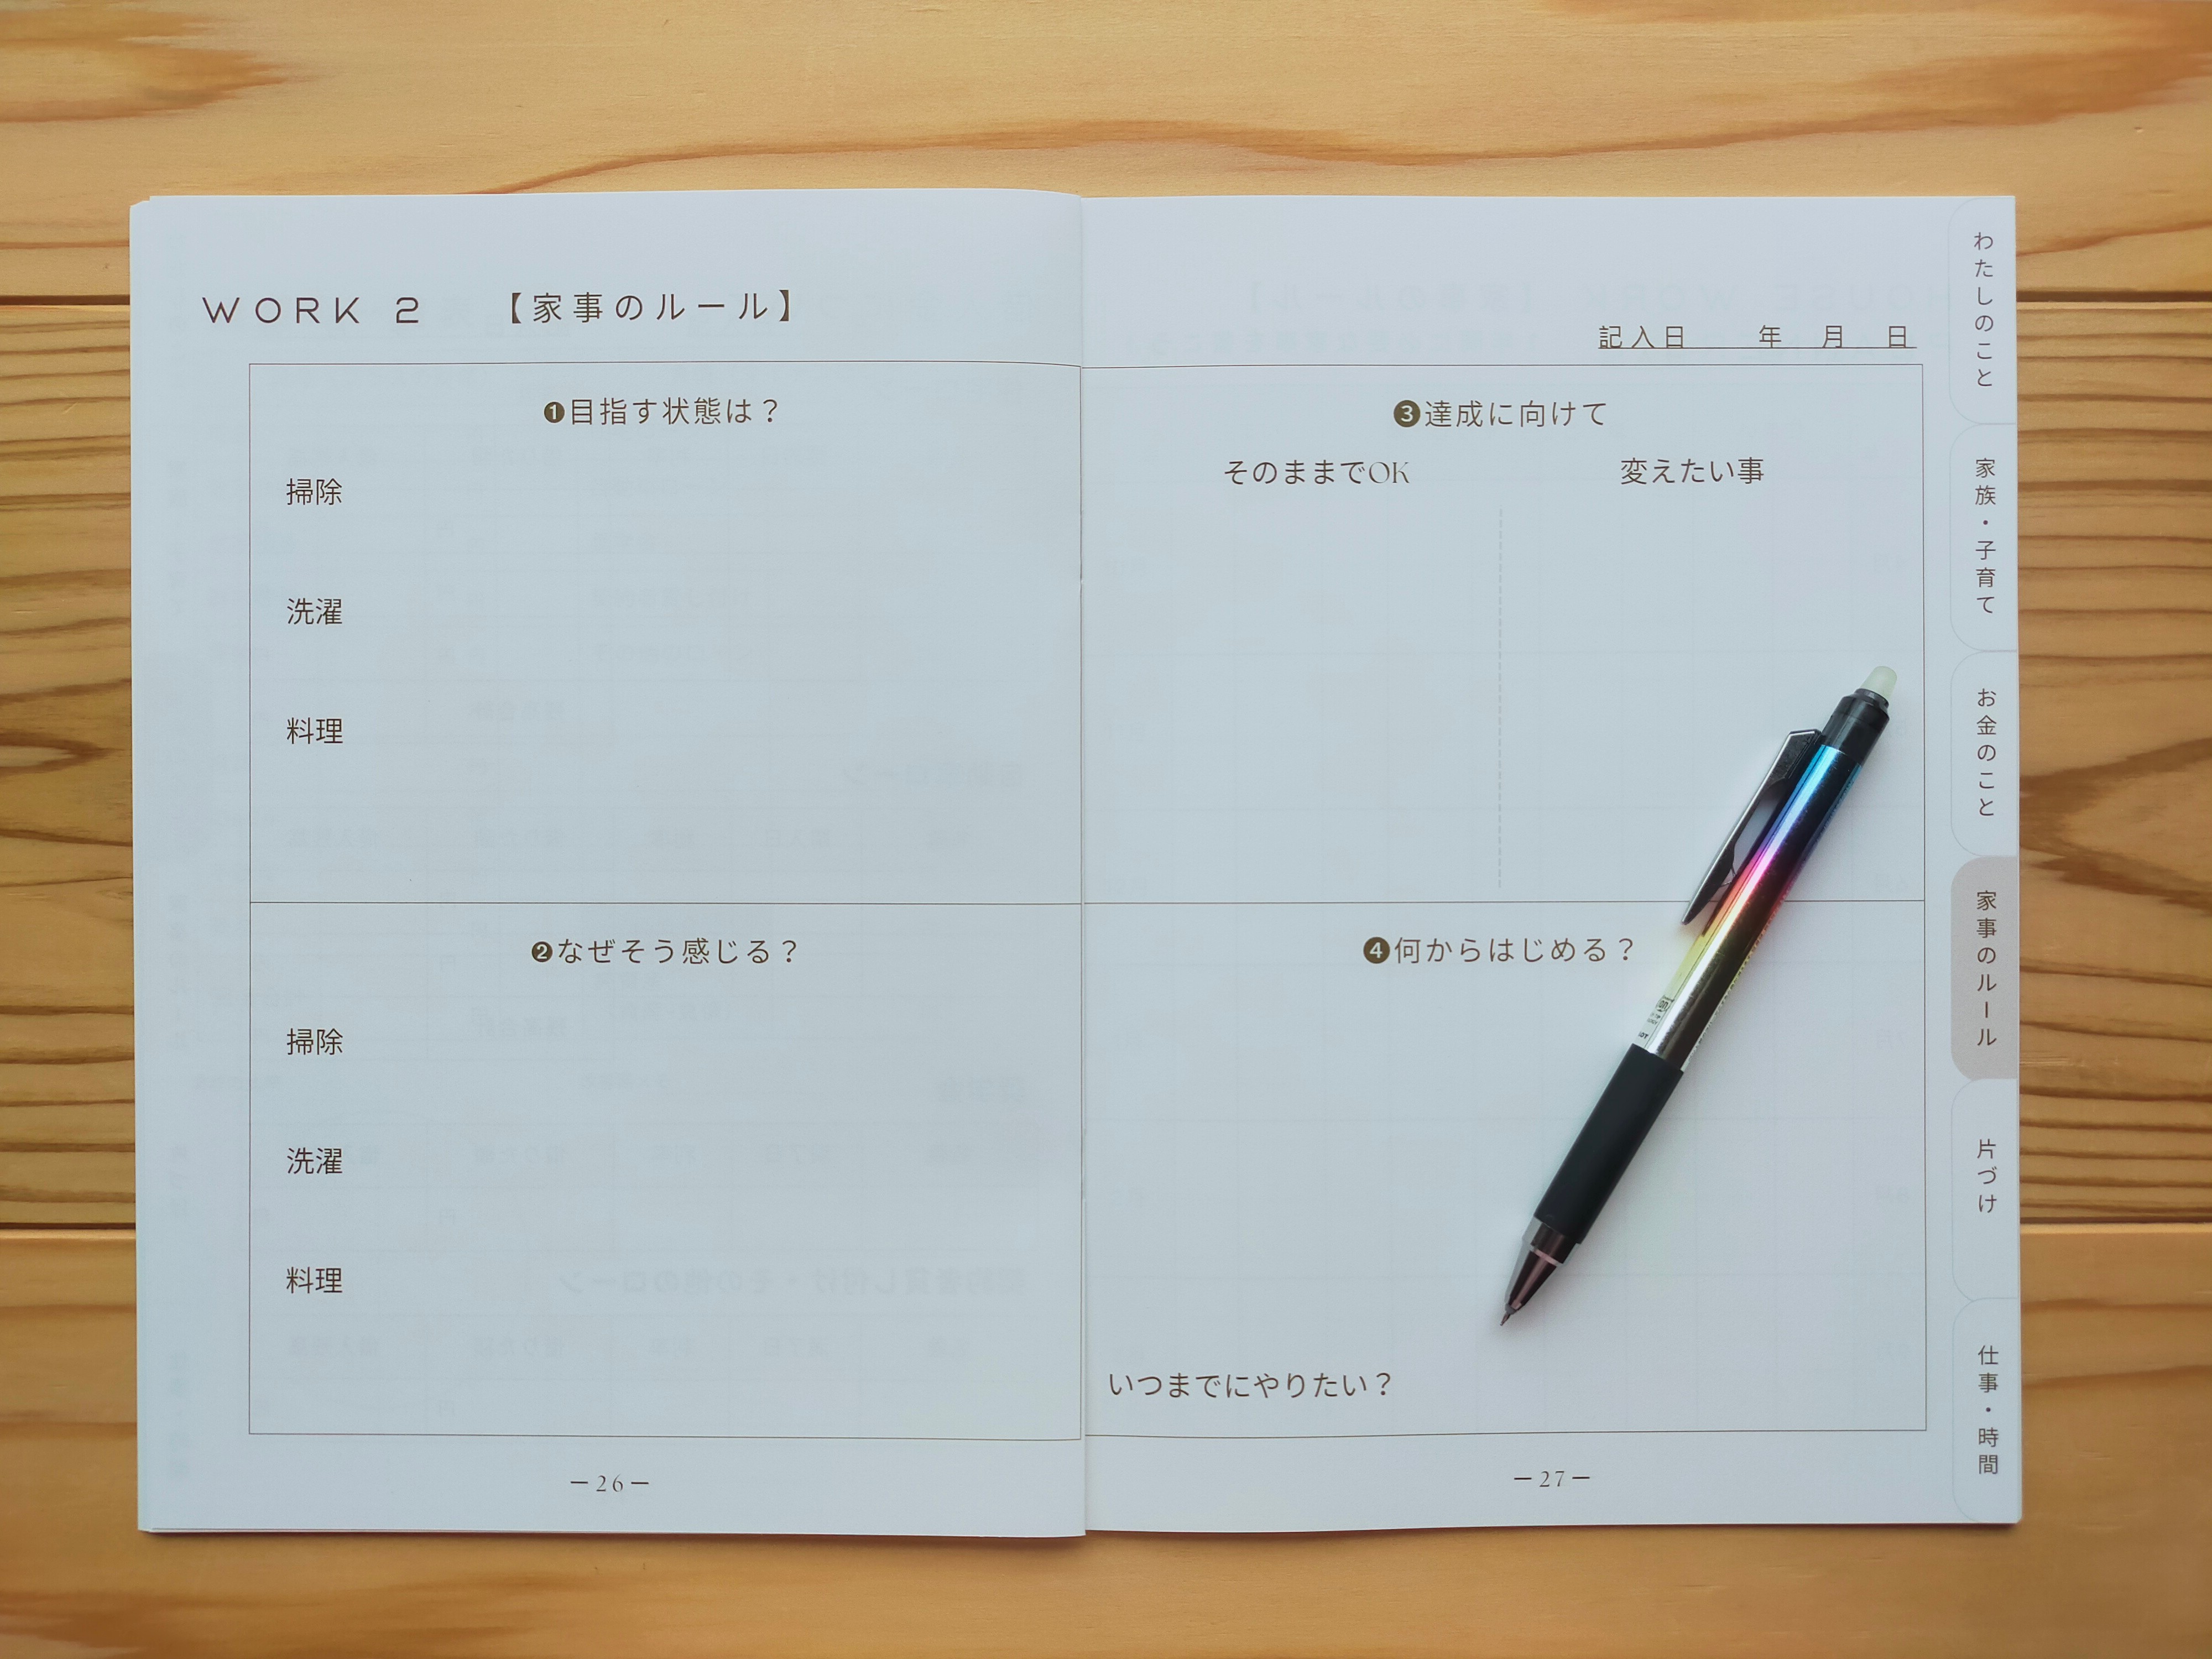 WORK 2 【家事のルール】
❶目指す状態は？
掃除
洗濯
料理
❷なぜそう感じる？
掃除
洗濯
料理
－26－
記入日 年 月 日
❸達成に向けて
そのままでOK 変えたい事
❹何からはじめる？
いつまでにやりたい？
－27－
わたしのこと
家族・子育て
お金のこと
家事のルール
片づけ
仕事・時間